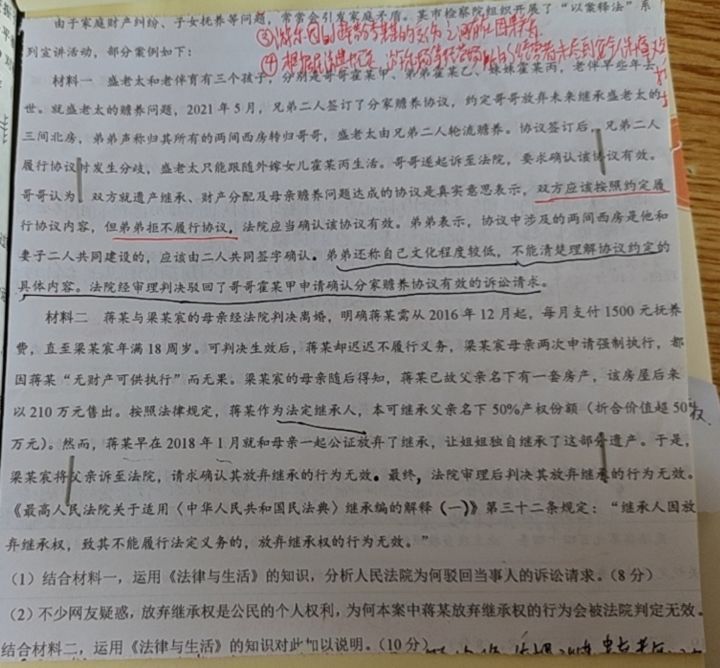 由于家庭财产纠纷、子女抚养等问题，常常会引发家庭矛盾。某市检察院组织开展了“以案释法”系
列宣讲活动，部分案例如下：
④根据法律规定
材料一　盛老太和老伴育有三个孩子，分别是哥哥霍某甲、弟弟霍某乙、妹妹霍某丙，老伴早些年去
世。就盛老太的赡养问题，2021年5月，兄弟二人签订了分家赡养协议，约定哥哥放弃未来继承盛老太的
三间北房，弟弟声称归其所有的两间西房转归哥哥，盛老太由兄弟二人轮流赡养。协议签订后，兄弟二人
履行协议时发生分歧，盛老太只能跟随外嫁女儿霍某丙生活。哥哥遂起诉至法院，要求确认该协议有效。
哥哥认为，双方就遗产继承、财产分配及母亲赡养问题达成的协议是真实意思表示，双方应该按照约定履
行协议内容，但弟弟拒不履行协议，法院应当确认该协议有效。弟弟表示，协议中涉及的两间西房是他和
妻子二人共同建设的，应该由二人共同签字确认。弟弟还称自己文化程度较低，不能清楚理解协议约定的
具体内容。法院经审理判决驳回了哥哥霍某甲申请确认分家赡养协议有效的诉讼请求。
材料二　蒋某与梁某宸的母亲经法院判决离婚，明确蒋某需从2016年12月起，每月支付1500元抚养
费，直至梁某宸年满18周岁。可判决生效后，蒋某却迟迟不履行义务，梁某宸母亲两次申请强制执行，都
因蒋某“无财产可供执行”而无果。梁某宸的母亲随后得知，蒋某已故父亲名下有一套房产，该房屋后来
以210万元售出。按照法律规定，蒋某作为法定继承人，本可继承父亲名下50%产权份额（折合价值超50
万元）。然而，蒋某早在2018年1月就和母亲一起公证放弃了继承，让姐姐独自继承了这部分遗产。于是，
梁某宸将父亲诉至法院，请求确认其放弃继承的行为无效。最终，法院审理后判决其放弃继承的行为无效。
《最高人民法院关于适用〈中华人民共和国民法典〉继承编的解释（一）》第三十二条规定：“继承人因放
弃继承权，致其不能履行法定义务的，放弃继承权的行为无效。”
（1）结合材料一，运用《法律与生活》的知识，分析人民法院为何驳回当事人的诉讼请求。（8分）
（2）不少网友疑惑，放弃继承权是公民的个人权利，为何本案中蒋某放弃继承权的行为会被法院判定无效。
结合材料二，运用《法律与生活》的知识对此加以说明。（10分）